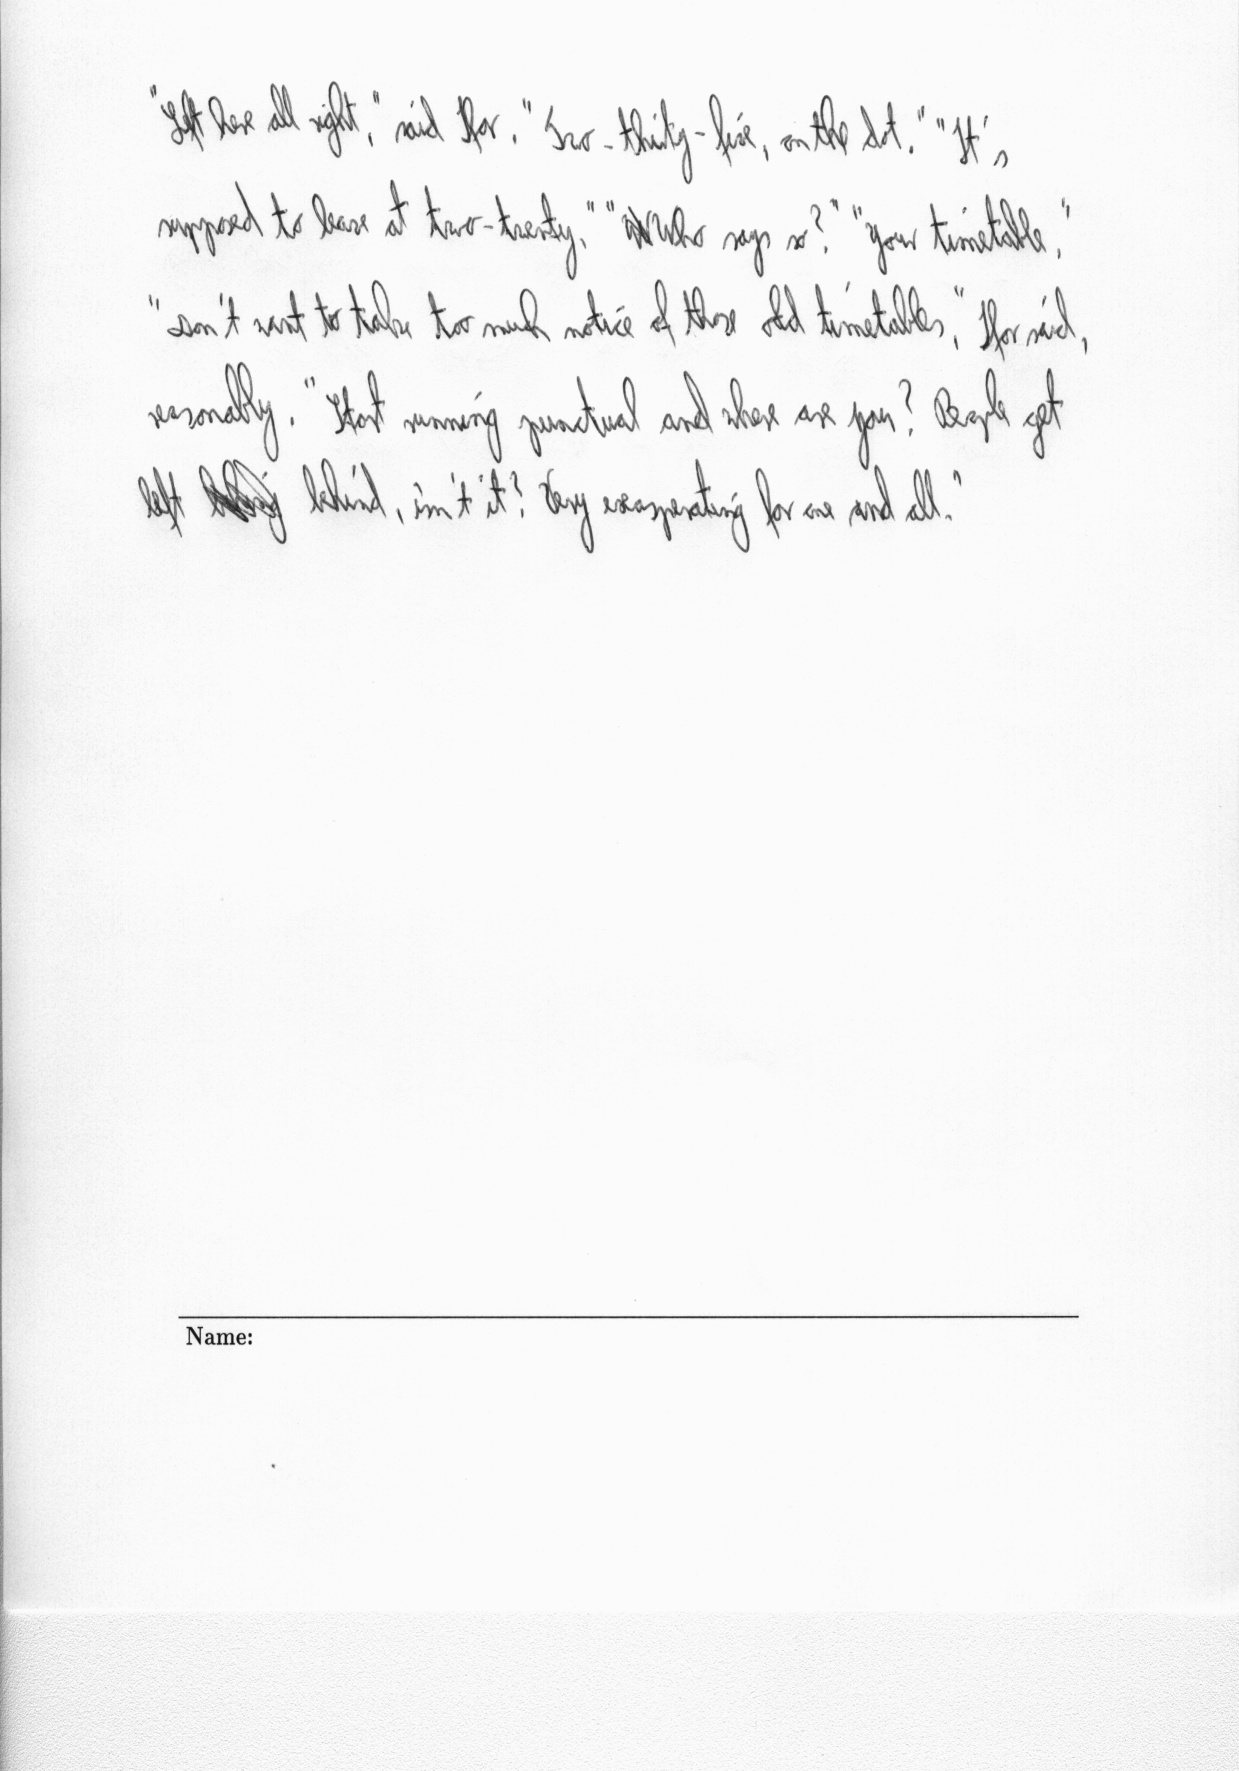 "Left here all right," said Ifor. "Two-thirty-five, on the dot." "It's
supposed to leave at two-twenty." "Who says so?" "Your timetable."
"Don't want to take too much notice of those old timetables," Ifor said,
reasonably. "Start running punctual and where are you? People get
left behind, isn't it? Very exasperating for one and all."
Name: